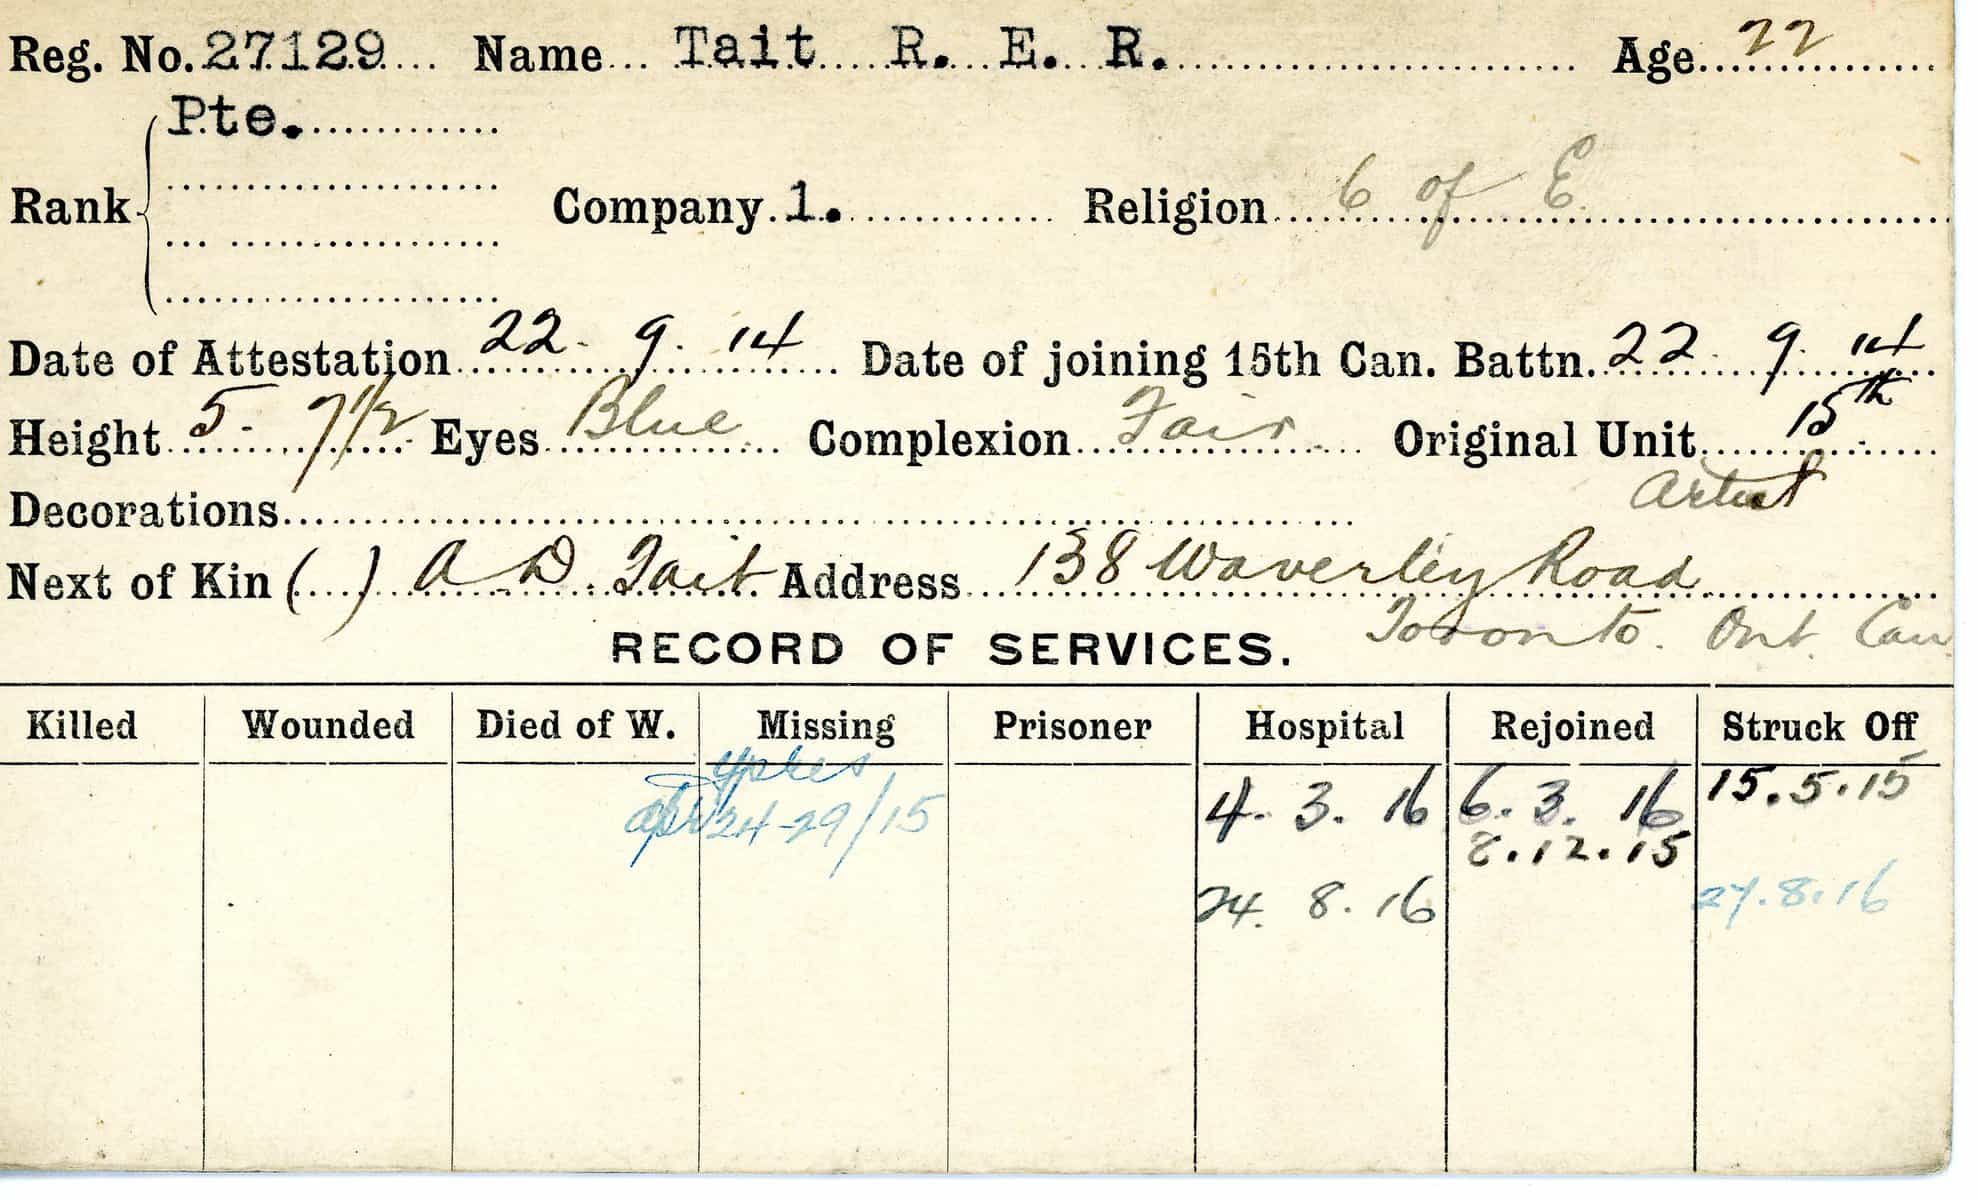 Reg. No. 27129 Name Tait R. E. R. Age 22
Pte.
Rank Company 1. Religion C of E
Date of Attestation 22. 9. 14 Date of joining 15th Can. Battn. 22. 9. 14
Height 5 - 7 1/2 Eyes Blue Complexion Fair Original Unit 15th
Decorations Artist
Next of Kin ( ) A D. Tait Address 138 Waverley Road
RECORD OF SERVICES. Toronto. Ont. Can
Killed Wounded Died of W. Missing Prisoner Hospital Rejoined Struck Off
Ypres
Apr 24-29/15 4. 3. 16 6. 3. 16 15.5.15
8.12.15
24. 8. 16 27.8.16